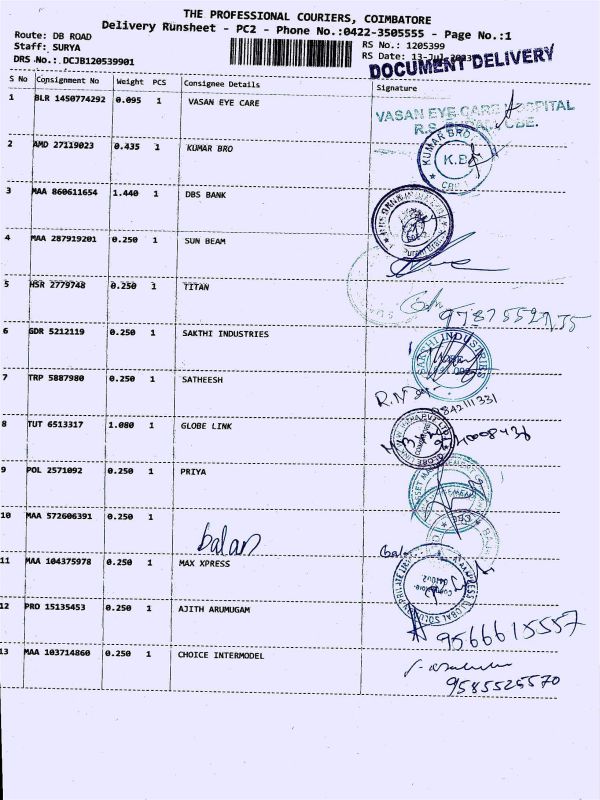 THE PROFESSIONAL COURIERS, COIMBATORE
Delivery Runsheet - PC2 - Phone No.:0422-3505555 - Page No.:1
Route: DB ROAD
Staff: SURYA
DRS No.: DCJB120539901
RS No.: 1205399
RS Date: 13-Jul-2023
DOCUMENT DELIVERY
S No Consignment No Weight PCS Consignee Details Signature
1 BLR 1450774292 0.095 1 VASAN EYE CARE
VASAN EYE CARE HOSPITAL
R.S. CBE.
2 AMD 27119023 0.435 1 KUMAR BRO
KUMAR BRO
K.B
3 MAA 860611654 1.440 1 DBS BANK
4 MAA 287919201 0.250 1 SUN BEAM
5 HSR 2779748 0.250 1 TITAN
6 GDR 5212119 0.250 1 SAKTHI INDUSTRIES
SAKTHI INDUSTRIES
7 TRP 5887980 0.250 1 SATHEESH
9842111331
8 TUT 6513317 1.080 1 GLOBE LINK
9 POL 2571092 0.250 1 PRIYA
10 MAA 572606391 0.250 1
balan
11 MAA 104375978 0.250 1 MAX XPRESS
12 PRO 15135453 0.250 1 AJITH ARUMUGAM
9566615557
13 MAA 103714860 0.250 1 CHOICE INTERMODEL
9585525570